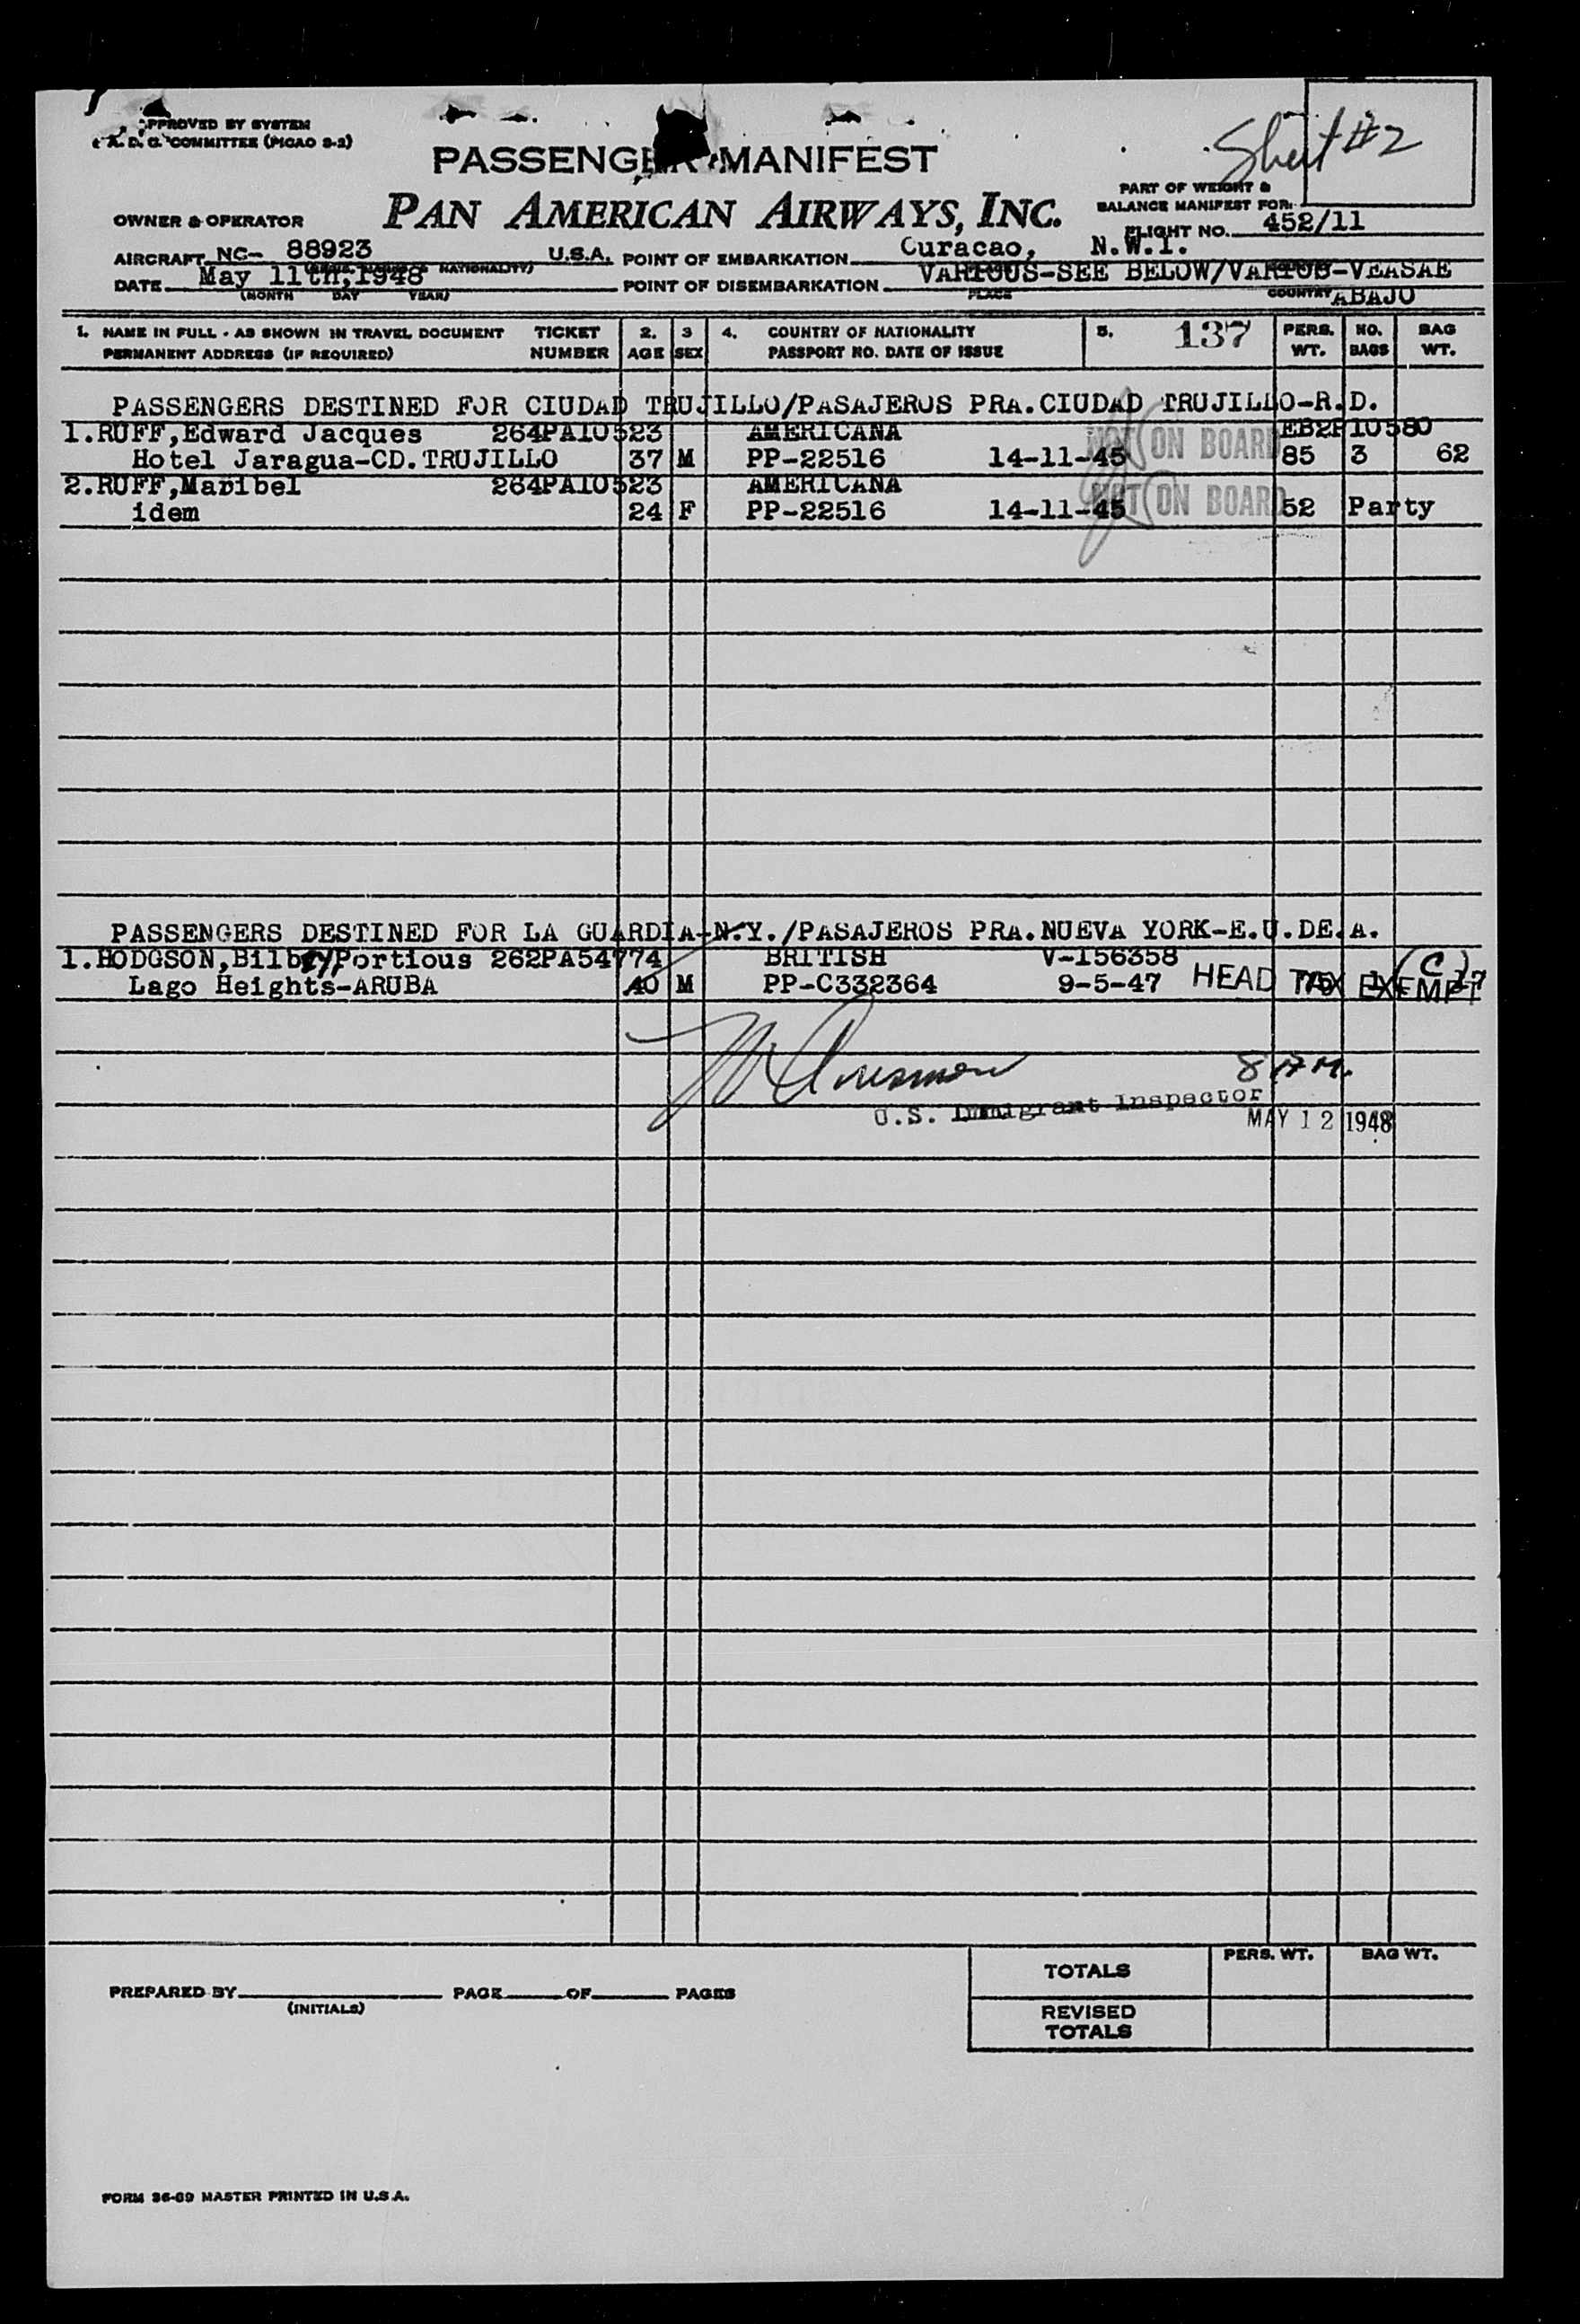 APPROVED BY SYSTEM
COMMITTEE (PICAO S-2)
Sheet #2
PASSENGER MANIFEST
PAN AMERICAN AIRWAYS, INC.
PART OF WEIGHT &
BALANCE MANIFEST FOR:
OWNER & OPERATOR
FLIGHT NO. 452/11
AIRCRAFT NC- 88923 U.S.A. POINT OF EMBARKATION Curacao, N.W.I.
NATIONALITY)
DATE May 11th,1948 POINT OF DISEMBARKATION VARIOUS-SEE BELOW/VARIOS-VEASAE
(MONTH DAY YEAR) PLACE COUNTRY ABAJO
1. NAME IN FULL - AS SHOWN IN TRAVEL DOCUMENT TICKET 2. 3 4. COUNTRY OF NATIONALITY 5. 137 PERS. NO. BAG
PERMANENT ADDRESS (IF REQUIRED) NUMBER AGE SEX PASSPORT NO. DATE OF ISSUE WT. BAGS WT.
PASSENGERS DESTINED FOR CIUDAD TRUJILLO/PASAJEROS PRA.CIUDAD TRUJILLO-R.D.
1.RUFF,Edward Jacques 264PA10523 AMERICANA NOT ON BOARD EB2P10580
Hotel Jaragua-CD.TRUJILLO 37 M PP-22516 14-11-45 85 3 62
2.RUFF,Maribel 264PA10523 AMERICANA NOT ON BOARD
idem 24 F PP-22516 14-11-45 52 Party
PASSENGERS DESTINED FOR LA GUARDIA-N.Y./PASAJEROS PRA.NUEVA YORK-E.U.DE.A.
1.HODGSON,Bilbey Portious 262PA54774 BRITISH V-156358 (C)
Lago Heights-ARUBA 40 M PP-C332364 9-5-47 HEAD TAX EXEMPT
8 AM.
U.S. Immigrant Inspector
MAY 12 1948
PERS. WT. BAG WT.
TOTALS
PREPARED BY PAGE OF PAGES
(INITIALS)
REVISED
TOTALS
FORM 36-69 MASTER PRINTED IN U.S.A.